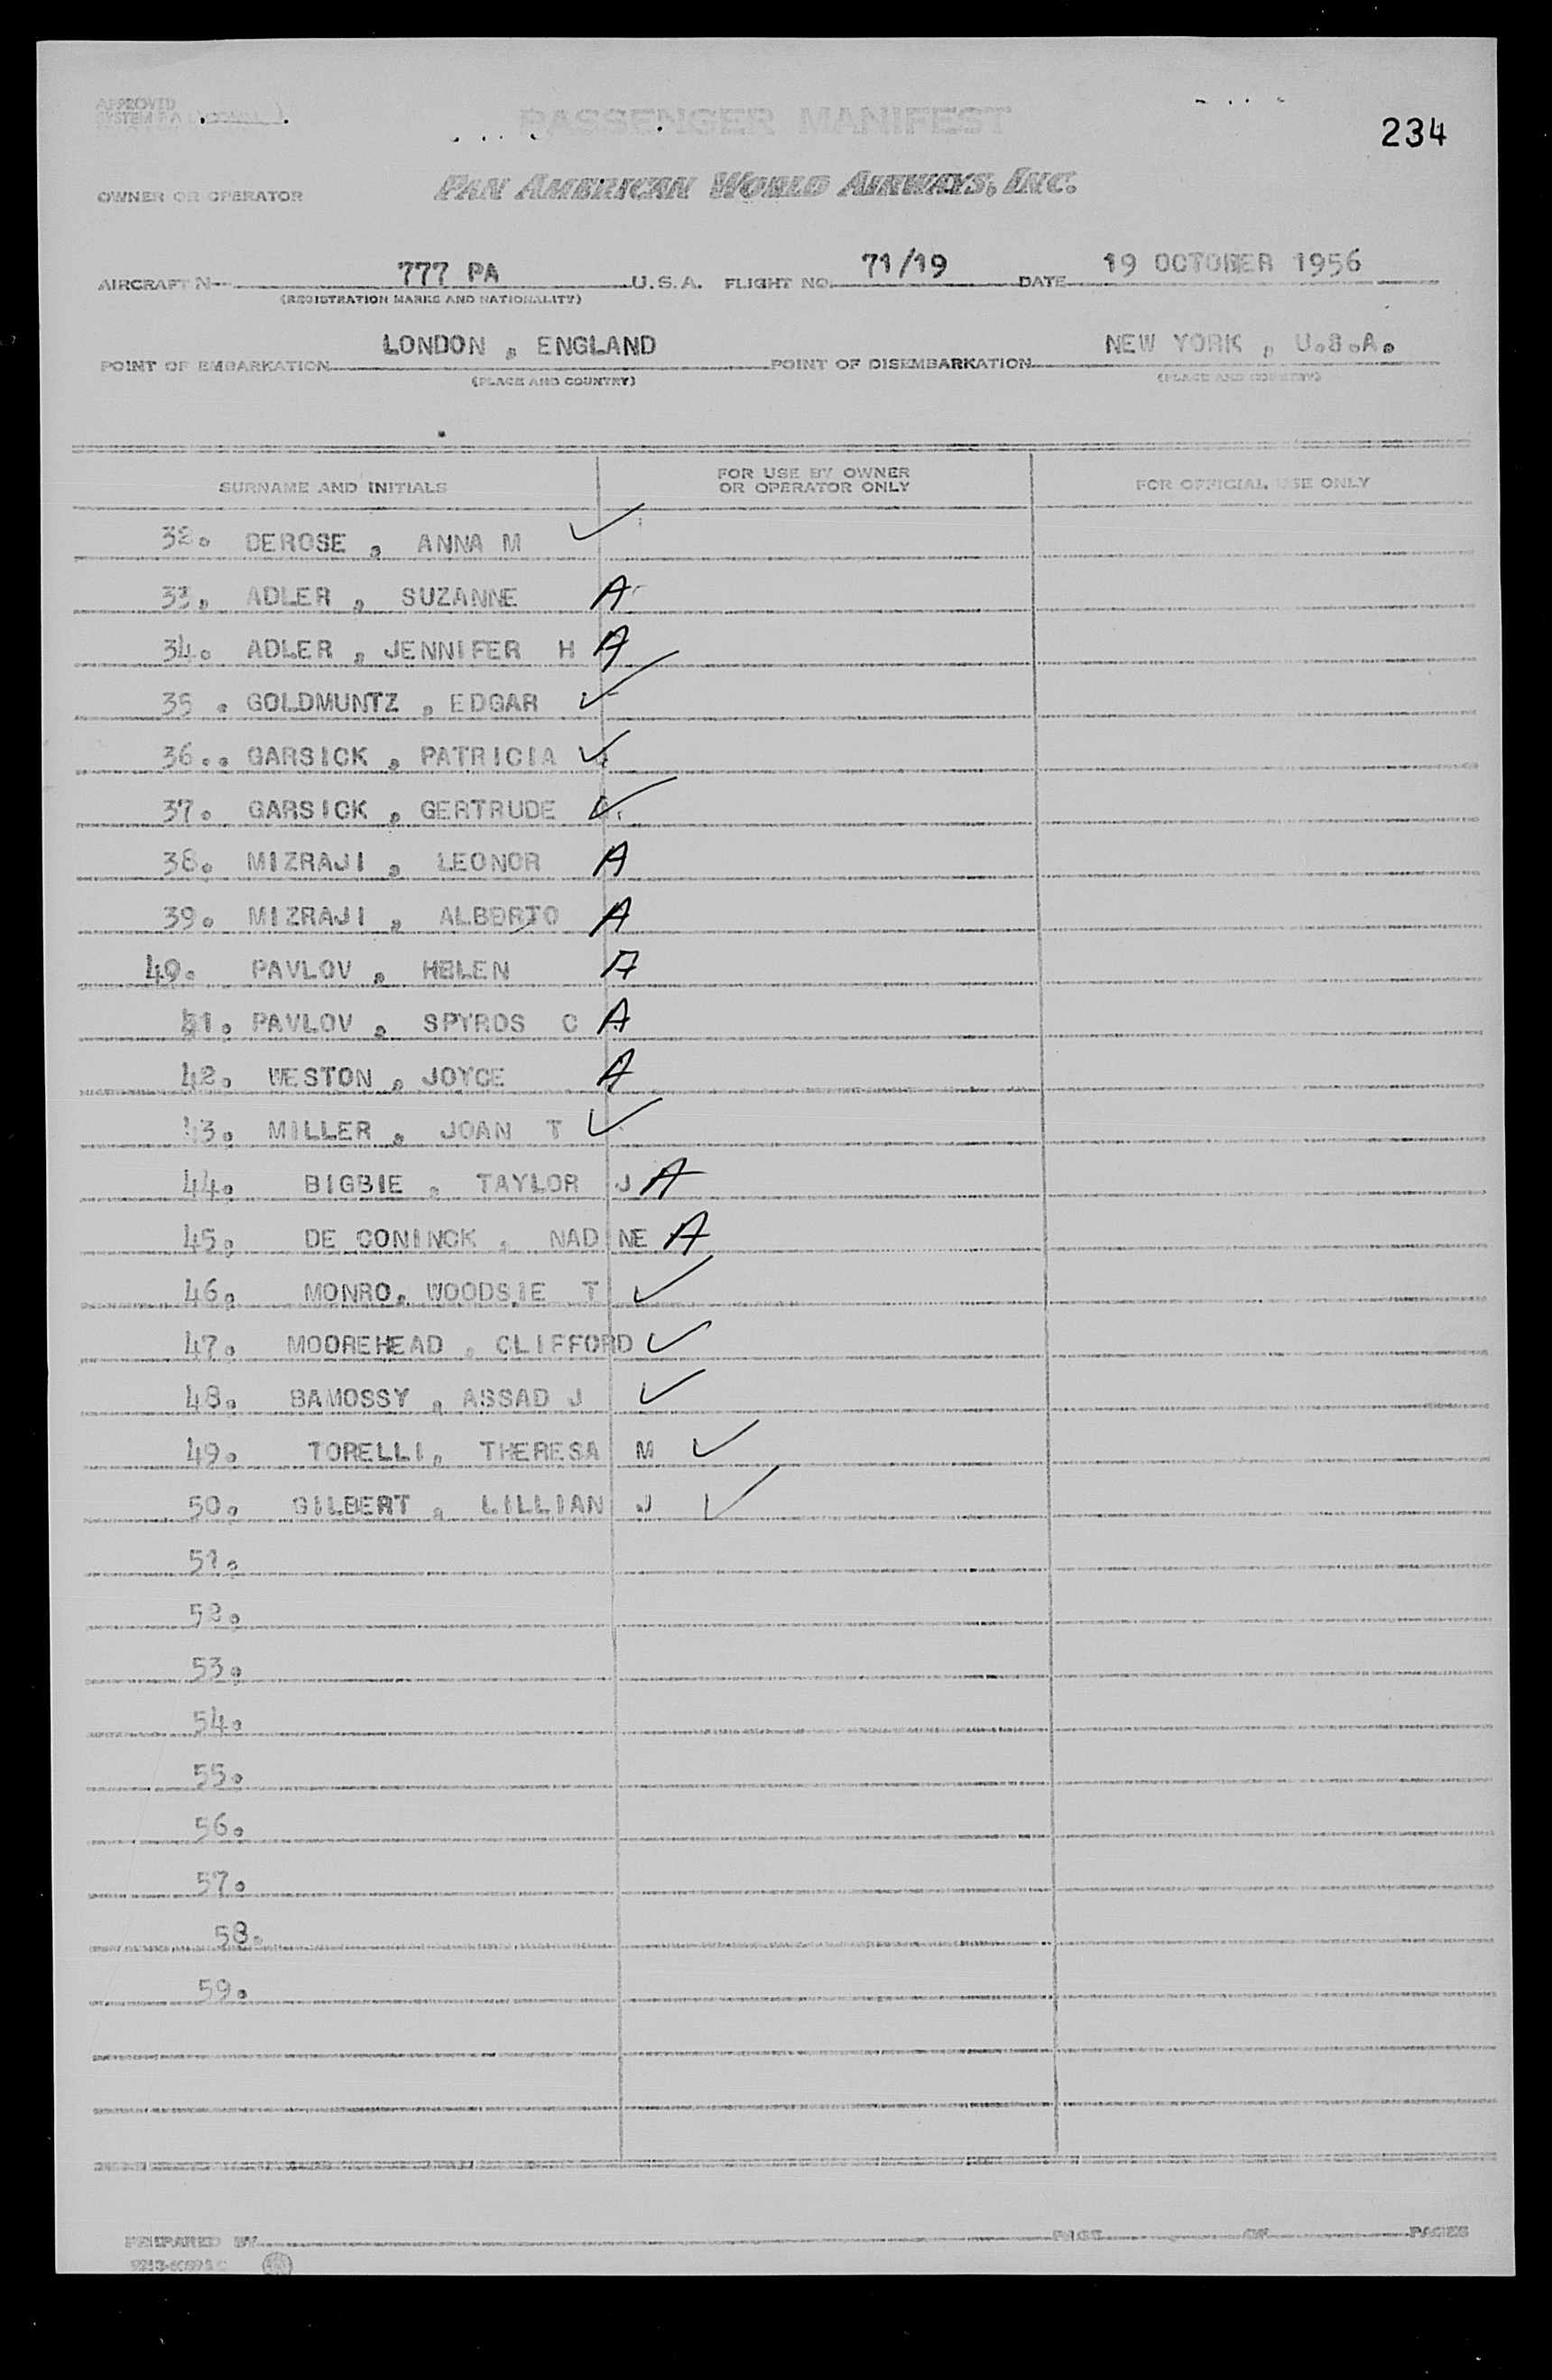 APPROVED
234
PASSENGER MANIFEST
OWNER OR OPERATOR PAN AMERICAN WORLD AIRWAYS, INC.
AIRCRAFT N- 777 PA U.S.A. FLIGHT NO. 71/19 DATE 19 OCTOBER 1956
(REGISTRATION MARKS AND NATIONALITY)
POINT OF EMBARKATION LONDON , ENGLAND POINT OF DISEMBARKATION NEW YORK , U.S.A.
(PLACE AND COUNTRY) (PLACE AND COUNTRY)
SURNAME AND INITIALS FOR USE BY OWNER OR OPERATOR ONLY FOR OFFICIAL USE ONLY
32. DEROSE , ANNA M ✓
33. ADLER , SUZANNE A
34. ADLER , JENNIFER H A
35 . GOLDMUNTZ , EDGAR ✓
36.. GARSICK , PATRICIA ✓
37. GARSICK , GERTRUDE ✓
38. MIZRAJI , LEONOR A
39. MIZRAJI , ALBERTO A
40. PAVLOV , HELEN A
41. PAVLOV , SPYROS C A
42. WESTON , JOYCE A
43. MILLER , JOAN T ✓
44. BIGBIE , TAYLOR J A
45. DE CONINCK , NADINE A
46. MONRO, WOODSIE T ✓
47. MOOREHEAD , CLIFFORD ✓
48. BAMOSSY , ASSAD J ✓
49. TORELLI, THERESA M ✓
50. GILBERT , LILLIAN J ✓
51.
52.
53.
54.
55.
56.
57.
58.
59.
PREPARED BY PAGE OF PAGES